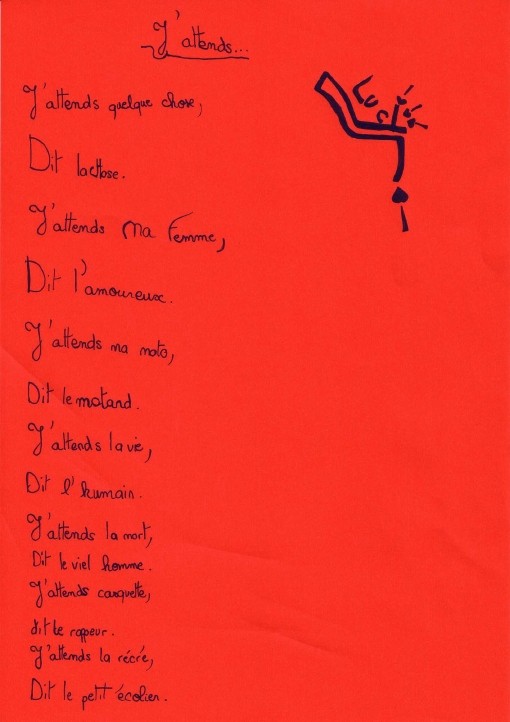 J'attends...
J'attends quelque chose,
Dit lachose.
J'attends Ma Femme,
Dit l'amoureux.
J'attends ma moto,
Dit le motard.
J'attends la vie,
Dit l'humain.
J'attends la mort,
Dit le viel homme.
J'attends casquette,
dit le rappeur.
J'attends la récré,
Dit le petit écolier.